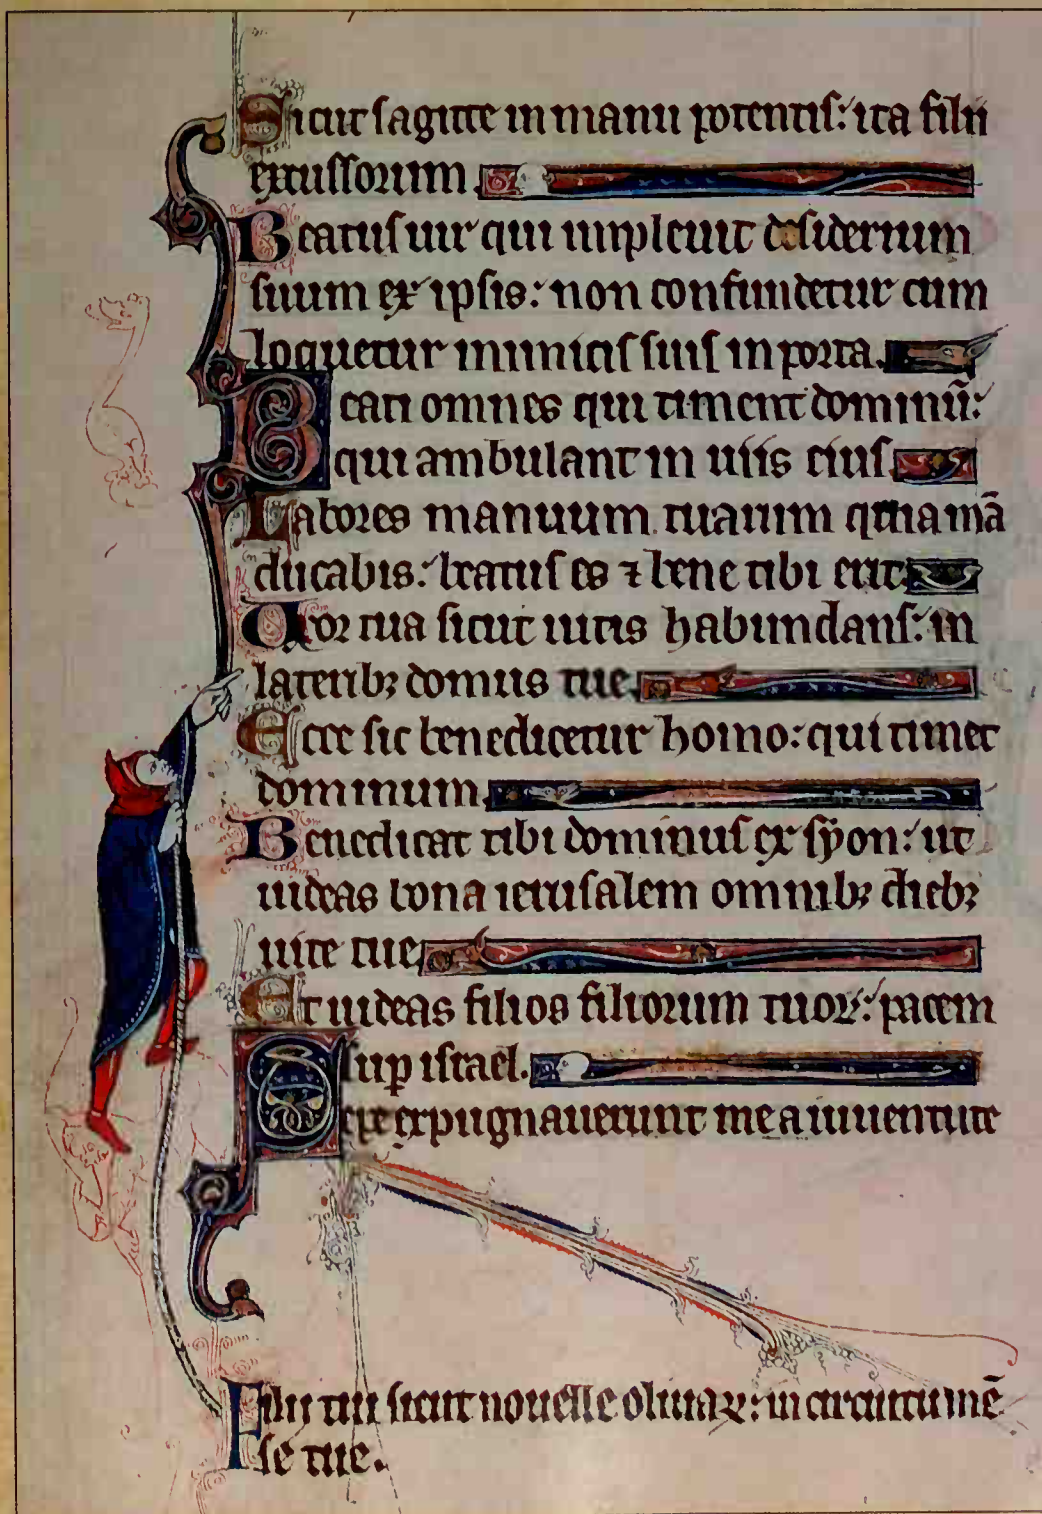 Sicut sagitte in manu potentis: ita filii
excussorum.
Beatus uir qui impleuit desiderium
suum ex ipsis: non confundetur cum
loquetur inimicis suis in porta.
Beati omnes qui timent dominū:
qui ambulant in uiis eius
Labores manuum tuarum quia mā
ducabis: beatus es ⁊ bene tibi erit
Uxor tua sicut uitis habundans: in
laterib; domus tue.
Ecce sic benedicetur homo: qui timet
dominum.
Benedicat tibi dominus ex syon: ut
uideas bona ierusalem omnib; dieb;
uite tue
Et uideas filios filiorum tuoꝝ: pacem
suꝑ israel.
Sepe expugnauerunt me a iuuentute
Filii tui sicut nouelle oliuaꝝ: in circuitu mē
se tue.